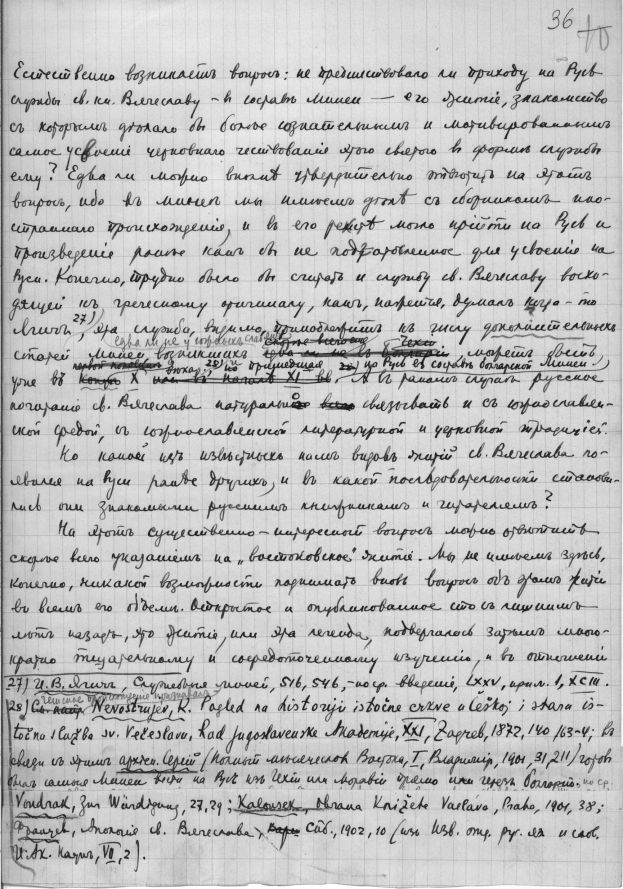 36
10
Естественно возникаетъ вопросъ: не предшествовало ли приходу на Русь
службы св. кн. Вячеславу – въ составѣ миней — его житіе, знакомство
съ которымъ дѣлало бы болѣе сознательнымъ и мотивированнымъ
самое усвоеніе церковнаго чествованія этого святого въ формѣ службы
ему? Едва ли можно вполнѣ утвердительно отвѣтить на этотъ
вопросъ, ибо въ минеѣ мы имѣемъ дѣло съ сборникомъ ино-
страннаго происхожденія, и въ его могло прійти на Русь и
произведеніе ранѣе какъ бы не подготовленное для усвоенія на
Руси. Конечно, трудно было бы считать и службу св. Вячеславу восхо-
дящей къ греческому оригиналу, какъ, кажется, думалъ когда-то
Ягичъ, 27) эта служба, видимо, принадлежитъ къ числу дополнительныхъ
едва ли не у южныхъ славянъ
статей миней, возникшихъ можетъ быть,
уже въ X вѣкѣ 28) и пришедшая на Русь въ составѣ болгарской Минеи.
А въ такомъ случаѣ русское
почитаніе св. Вячеслава натурально связывать и съ югославян-
ской средой, съ югославянской литературной и церковной традиціей.
Но какой изъ извѣстныхъ намъ видовъ житій св. Вячеслава по-
явился на Руси ранѣе другихъ, и въ какой послѣдовательности станови-
лись они знакомыми русскимъ книжникамъ и читателямъ?
На этотъ существенно-интересный вопросъ можно отвѣтить
скорѣе всего указаніемъ на „востоковское" житіе. Мы не имѣемъ здѣсь,
конечно, никакой возможности поднимать вновь вопросъ объ этомъ житіи
во всемъ его объемѣ. Открытое и опубликованное сто съ лишнимъ
лѣтъ назадъ, это житіе, или эта легенда, подвергалось затѣмъ много-
кратно тщательному и сосредоточенному изученію, и въ отношеніи
27) И. В. Ягичъ, Служебныя минеи, 516, 546, – ср. введеніе, LXXV, прим. 1, XCIII.
28) Nevostrujev, K. Pogled na historiju istočne crkve u Českoj i stara is-
točna služba sv. Večeslavu, Rad Jugoslavenske Akademije, XXI, Zagreb, 1872, 140, 163-4; въ
связи съ этимъ архіеп. Сергій (Полный мѣсяцесловъ Востока, I, Владиміръ, 1901, 31, 211) готовъ
былъ самыя Минеи вести на Русь изъ Чехіи или Моравіи прямо или черезъ Болгарію. – ср.
Vondrák, Zur Würdigung, 27, 29; Kalousek, Obrana Knížete Václava, Praha, 1901, 38;
Францевъ, Апологія св. Вячеслава, Спб., 1902, 10 (изъ Изв. отд. ру. яз. и слов.
И. Ак. Наукъ, VII, 2).